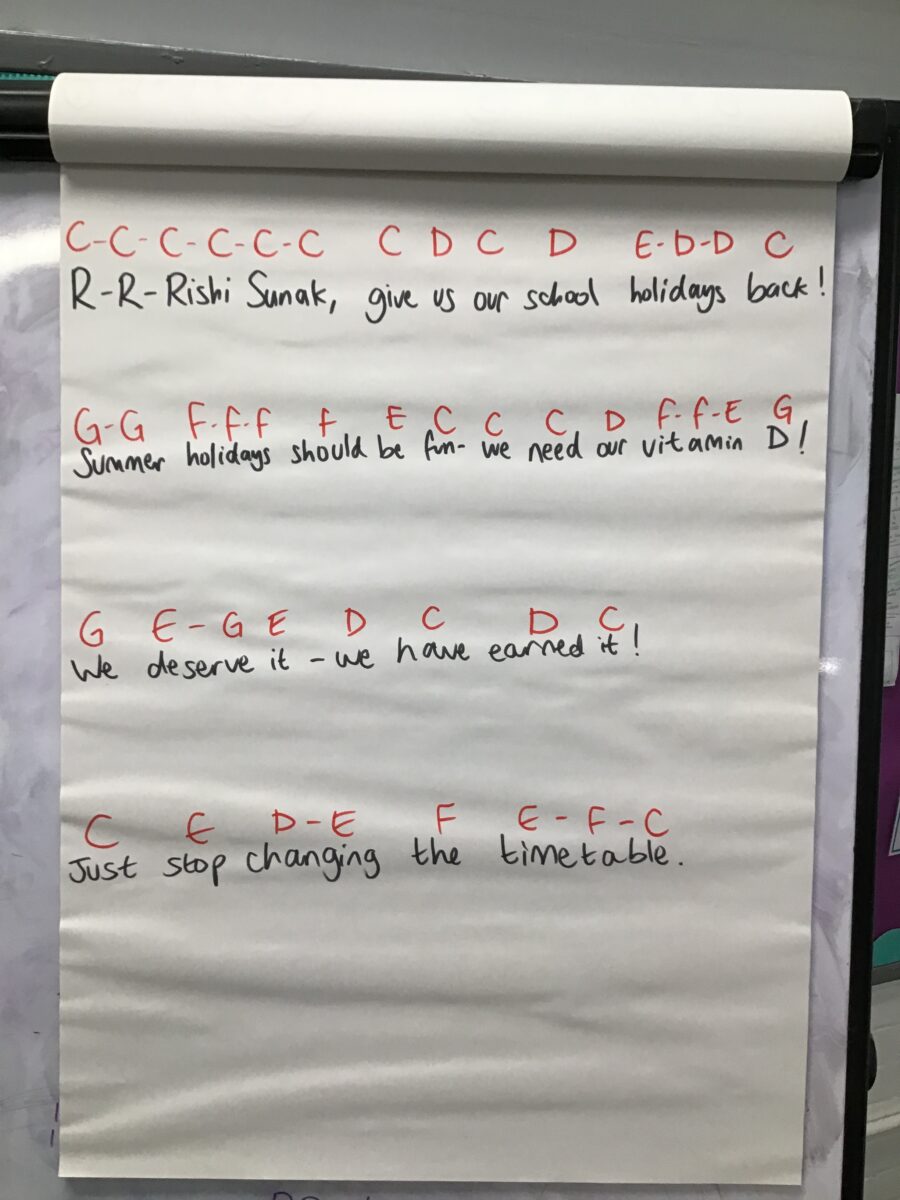 C-C-C-C-C-C C D C D E-D-D C
R-R-Rishi Sunak, give us our school holidays back!
G-G F-F-F F E C C C D F-F-E G
Summer holidays should be fun- we need our vitamin D!
G E-G E D C D C
We deserve it - we have earned it!
C E D-E F E-F-C
Just stop changing the timetable.